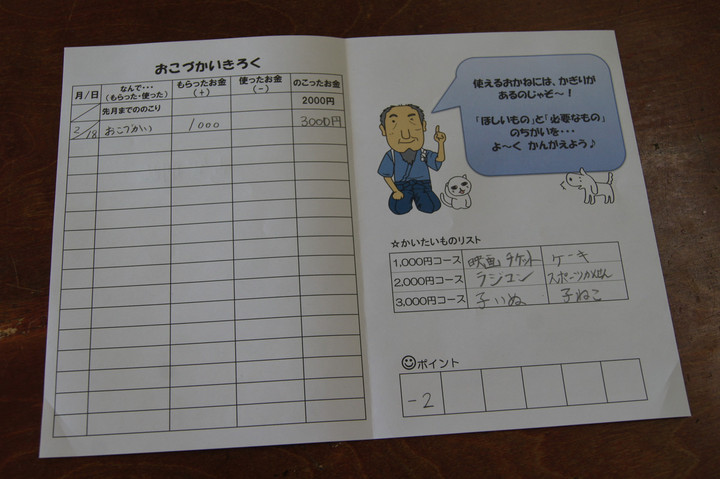 おこづかいきろく
月/日 なんで・・・ もらったお金 使ったお金 のこったお金
(もらった・使った) (+) (-)
先月までののこり 2000円
2/18 おこづかい 1000 3000円
使えるおかねには、かぎりが
あるのじゃぞ~!
「ほしいもの」と「必要なもの」
のちがいを・・・
よ~く かんがえよう♪
☆かいたいものリスト
1,000円コース 映画チケット ケーキ
2,000円コース ラジコン スポーツかめん
3,000円コース 子いぬ 子ねこ
ポイント
-2